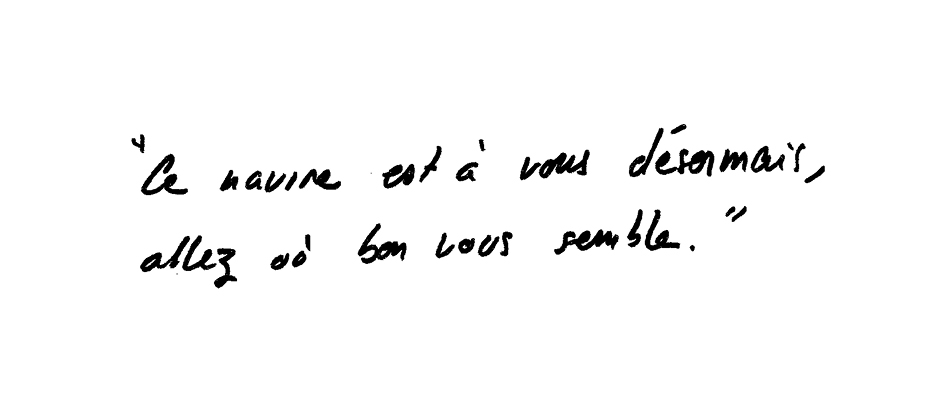 "Ce navire est à vous désormais,
allez où bon vous semble."